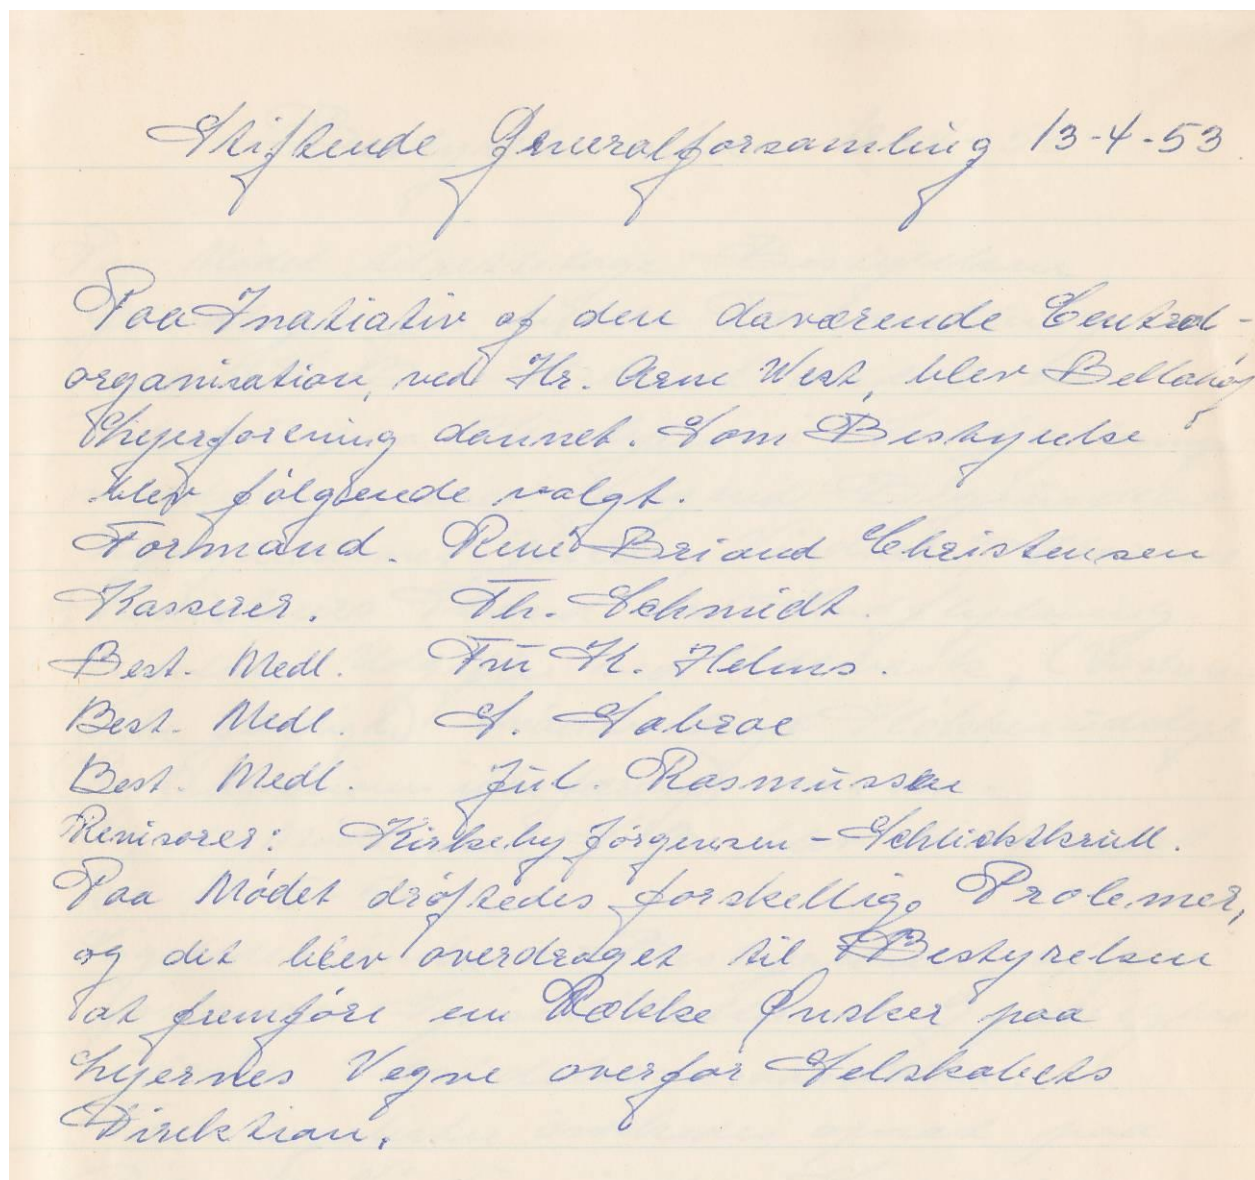 Stiftende Generalforsamling 13-4-53.
Paa Inatiativ af den daværende Central-
organisation, ved Hr. Arne West, blev Bellahøj
Lejerforening dannet. Som Bestyrelse
blev følgende valgt.
Formand. René Briand Christensen
Kasserer. Th. Schmidt.
Best. Medl. Fru K. Helms.
Best. Medl. S. Sabroe
Best. Medl. Jul. Rasmussen
Revisorer: Kirkeby Jørgensen - Schlichtkrull.
Paa Mødet drøftedes forskellige Prolemer,
og det blev overdraget til Bestyrelsen
at fremføre en Række Ønsker paa
Lejernes Vegne overfor Selskabets
Direktion.